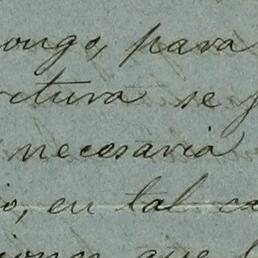 ongo, para
ctura se
necesaria
io, en tal ca
que